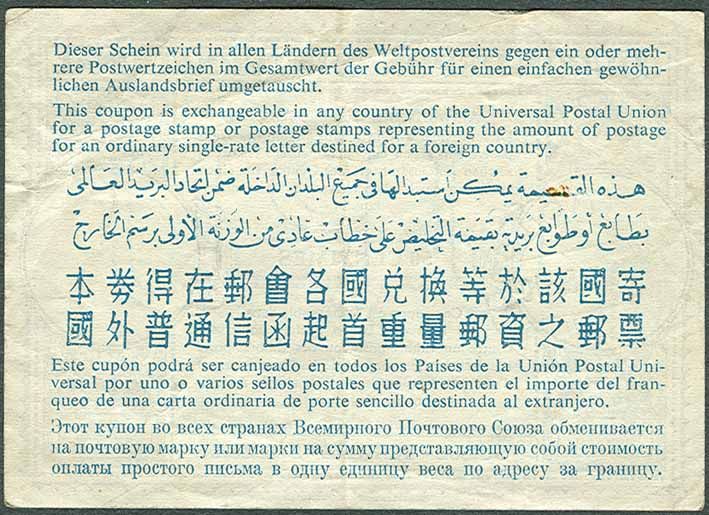 Dieser Schein wird in allen Ländern des Weltpostvereins gegen ein oder meh-
rere Postwertzeichen im Gesamtwert der Gebühr für einen einfachen gewöhn-
lichen Auslandsbrief umgetauscht.
This coupon is exchangeable in any country of the Universal Postal Union
for a postage stamp or postage stamps representing the amount of postage
for an ordinary single-rate letter destined for a foreign country.
هذه القسيمة يمكن استبدالها في جميع البلدان الداخلة ضمن اتحاد البريد العالمي
بطابع أو طوابع بريدية بقيمة التخليص على خطاب عادى من الوزنة الأولى برسم الخارج
本券得在郵會各國兌換等於該國寄
國外普通信函起首重量郵資之郵票
Este cupón podrá ser canjeado en todos los Países de la Unión Postal Uni-
versal por uno o varios sellos postales que representen el importe del fran-
queo de una carta ordinaria de porte sencillo destinada al extranjero.
Этот купон во всех странах Всемирного Почтового Союза обменивается
на почтовую марку или марки на сумму представляющую собой стоимость
оплаты простого письма в одну единицу веса по адресу за границу.